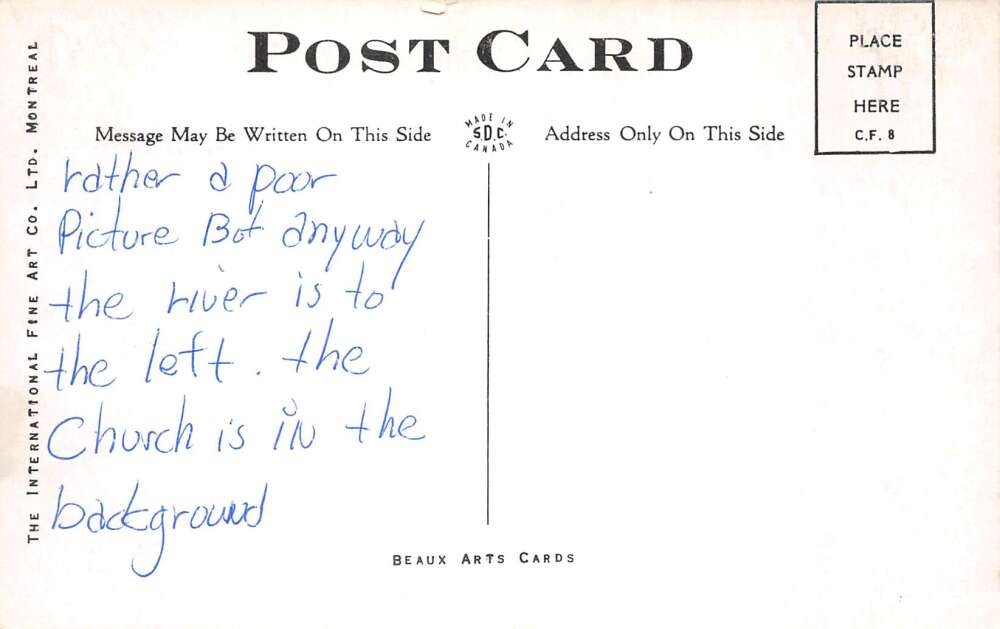 POST CARD
PLACE
STAMP
HERE
C.F. 8
Message May Be Written On This Side
MADE IN
S.D.C.
CANADA
Address Only On This Side
rather a poor
Picture Bot anyway
the river is to
the left. the
Church is in the
background
BEAUX ARTS CARDS
THE INTERNATIONAL FINE ART CO. LTD. MONTREAL